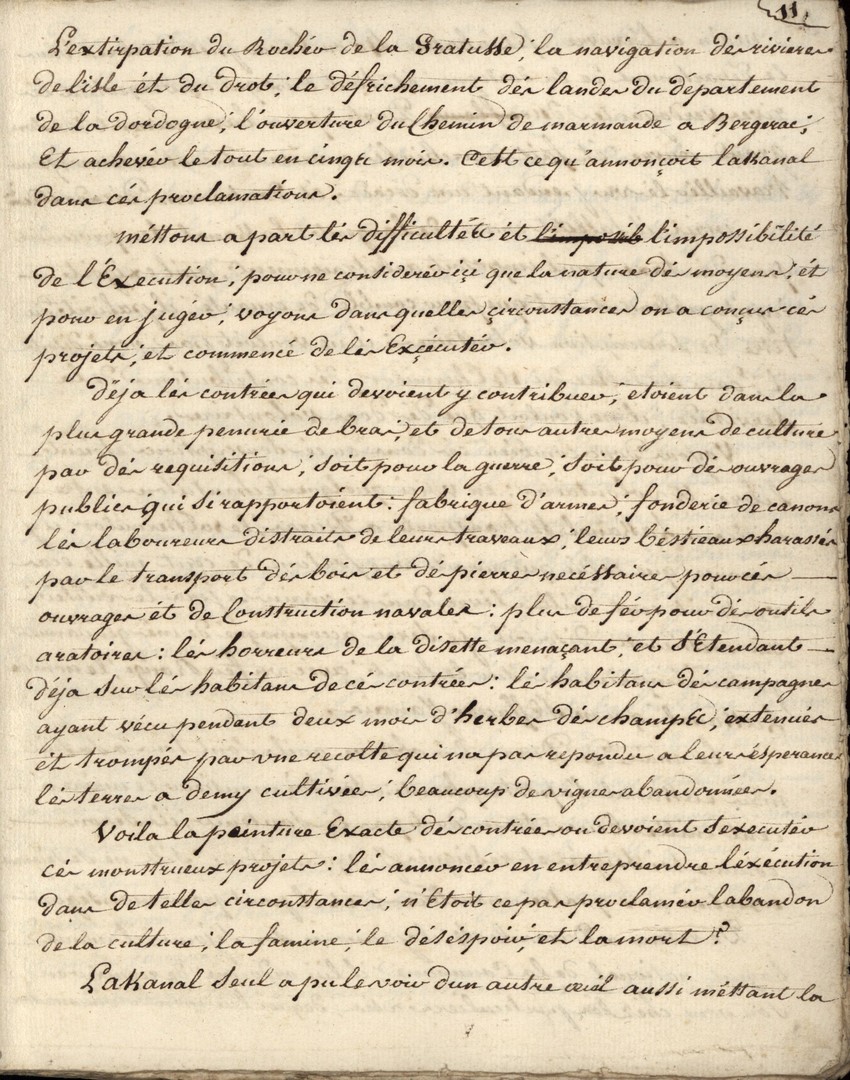 11
L'extirpation du Rocher de la Gratusse; la navigation dés rivieres
de l'isle ét du drot; le défrichement dés landes du département
de la dordogne; l'ouverture du Chemin de marmande a Bergerac;
Et achever le tout en cinq mois. C'est ce qu'annonçoit lakanal
dans cés proclamations.
méttons a part lés difficultés ét l'imposib l'impossibilité
de l'Execution; pour ne considerér içi que la nature dés moyens; ét
pour en jugér; voyons dans quelles çirconstances on a conçus cés
projets; et commencé de lés Exçécutér.
Déja lés contrées qui devoient y contribuer; etoient dans la
plus grande penurie de bras; et de tous autres moyens de culture
par dés requisitions; soit pour la guerre; soit pour dés ouvrages
publics qui si rapportoient: fabrique d'armes; fonderie de canons
lés laboureurs distraits de leurs traveaux; leurs béstieaux harassés
par le transport dés bois et dés pierres necéssaires pour cés
ouvrages ét de Construction navales: plus de fér pour dés outils
aratoires: lés horreurs de la disette menaçant; et s'Etendant
déja sur lés habitans de cés contrées: lés habitans dés campagnes
ayant vécu pendant deux mois d'herbes dés champs; extenués
ét trompés par une recolte qui na pas repondu a leurs ésperances
lés terres a demy cultivées; beaucoup de vignes abandonnées.
Voila la peinture Exacte dés contrées ou devoient s'executér
cés monstrueux projets: lés annoncér en entreprendre l'éxécution
dans de telles circonstances; n'Etoit ce pas proclamér labandon
de la culture; la famine; le déséspoir; et la mort?
Lakanal seul a pu le voir d'un autre œil aussi méttant la